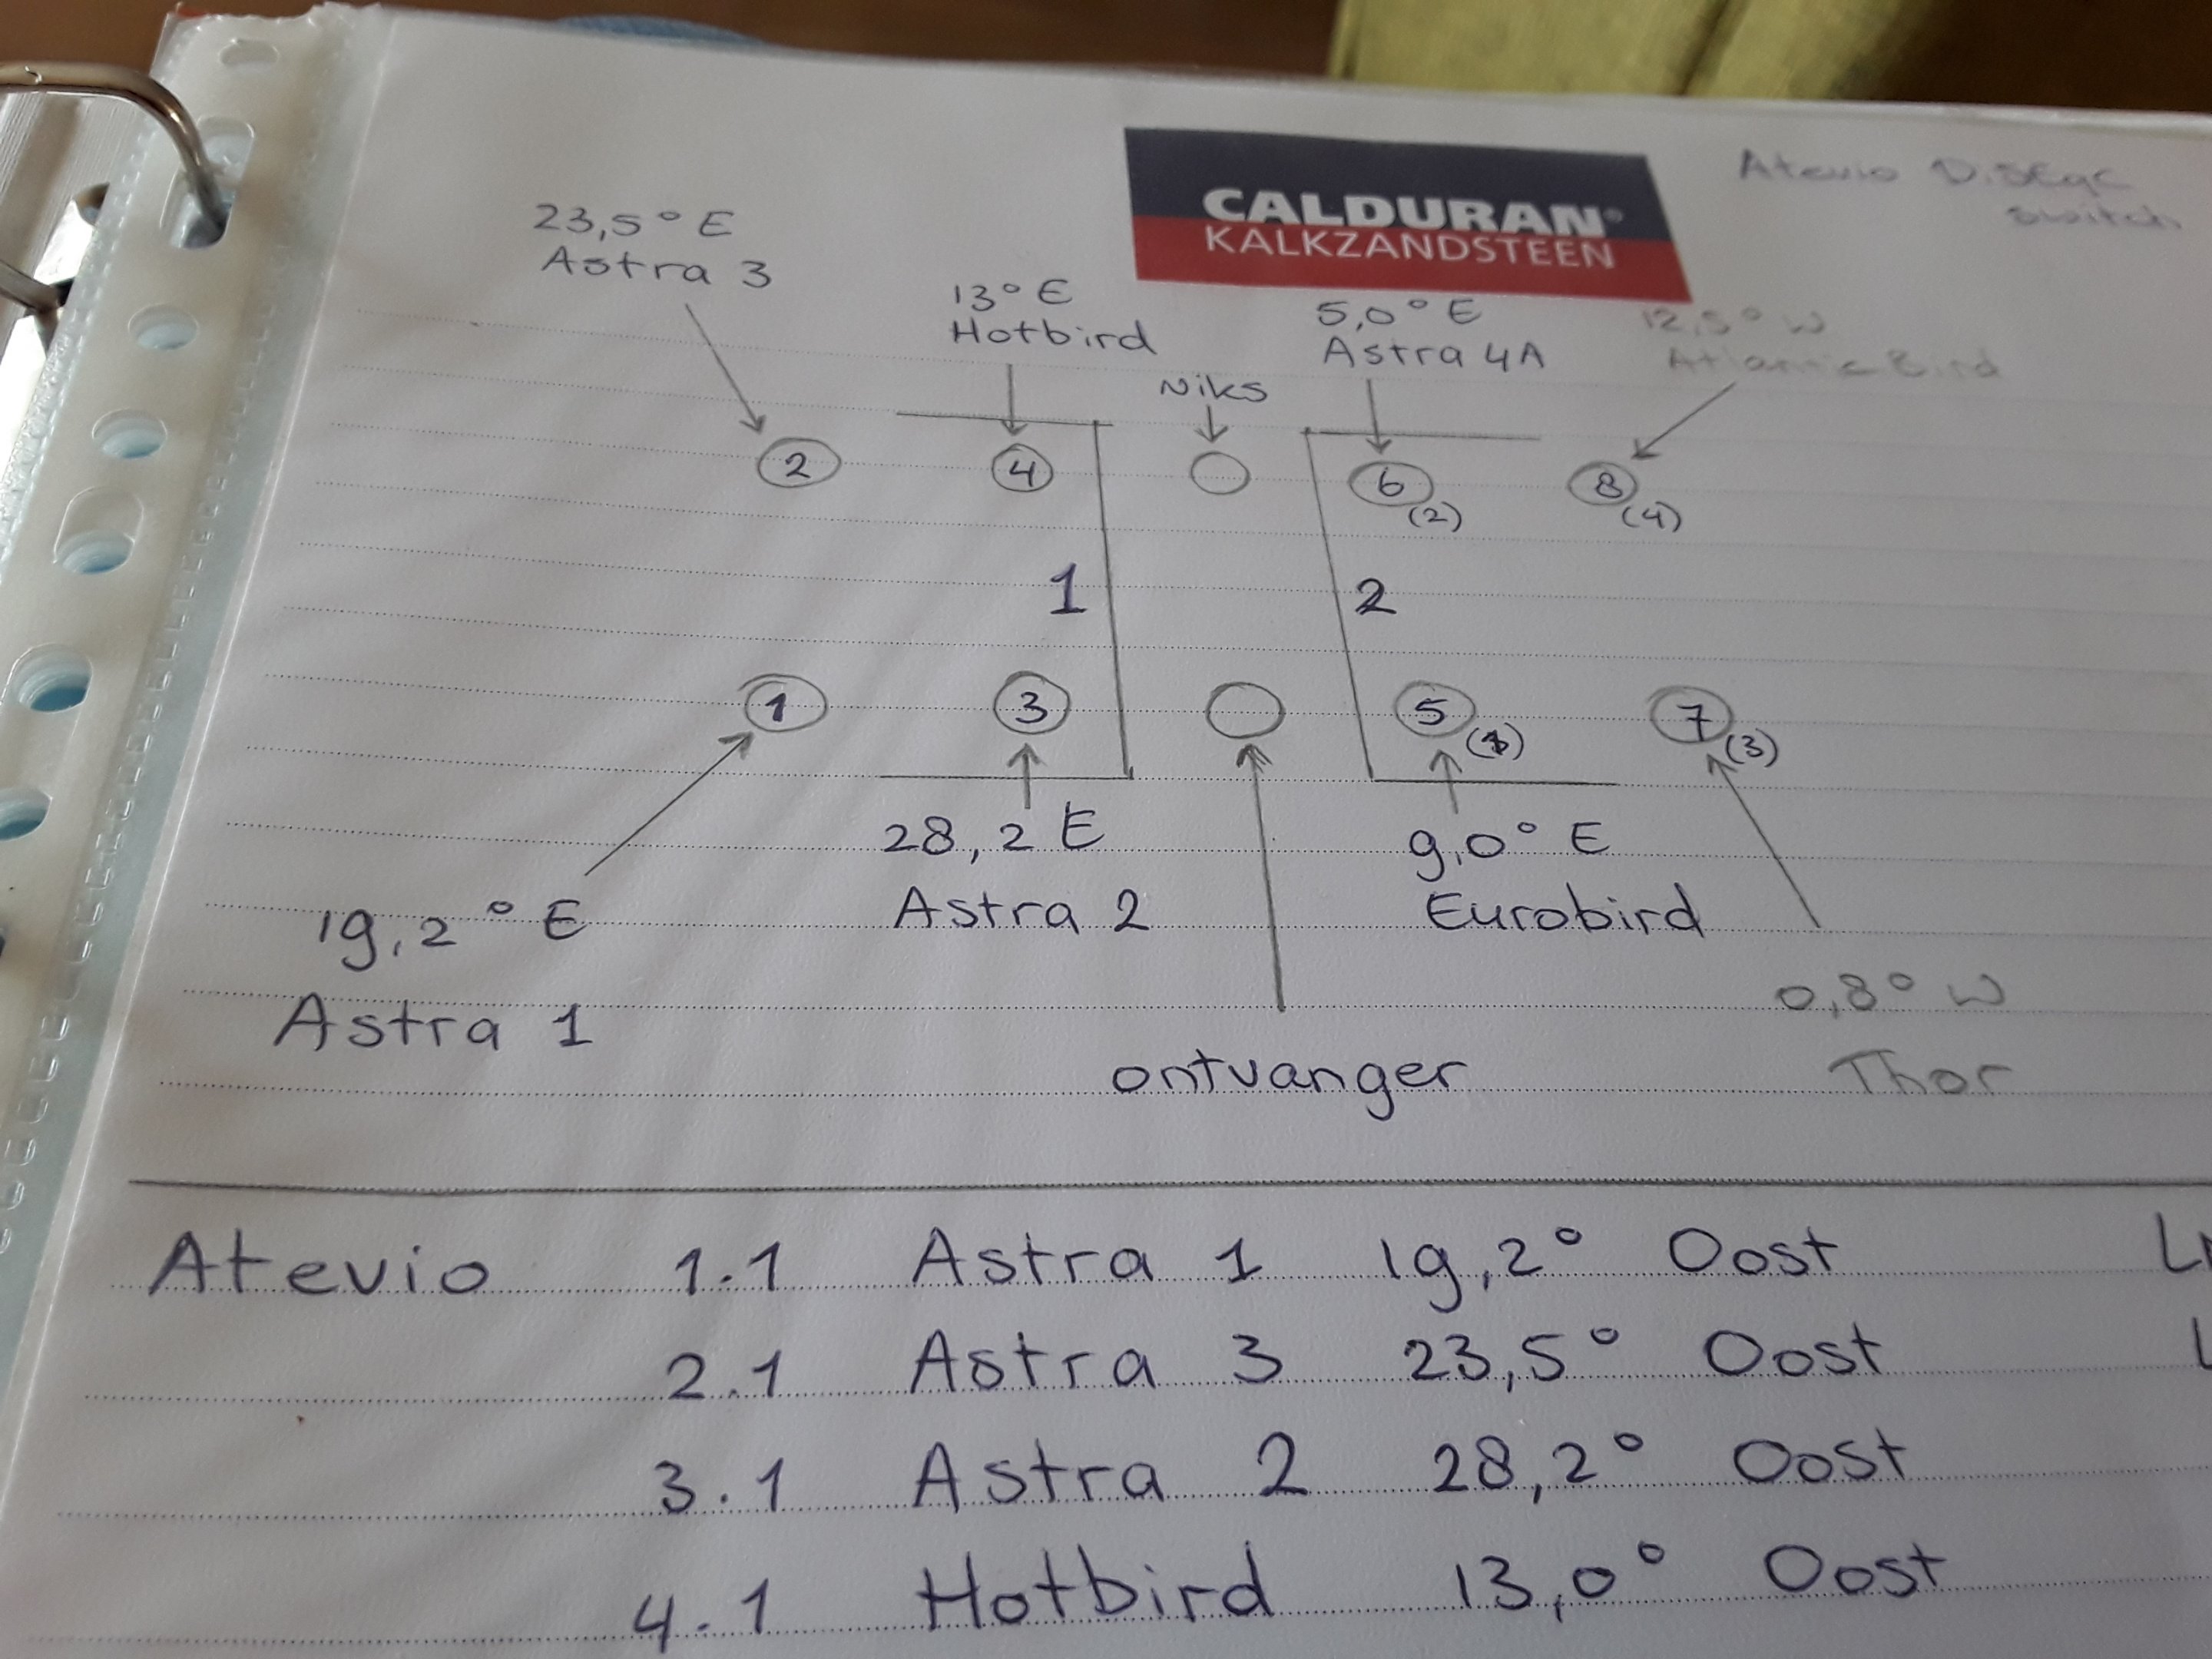 CALDURAN®
KALKZANDSTEEN
Atevio DiSEqC
switch
23,5° E
Astra 3
13° E
Hotbird
Niks
5,0° E
Astra 4A
12,5° W
Atlantic Bird
2
4
6
(2)
8
(4)
1
2
1
3
5
(1)
7
(3)
19,2° E
Astra 1
28,2 E
Astra 2
ontvanger
9,0° E
Eurobird
0,8° W
Thor
Atevio 1.1 Astra 1 19,2° Oost
2.1 Astra 3 23,5° Oost
3.1 Astra 2 28,2° Oost
4.1 Hotbird 13,0° Oost